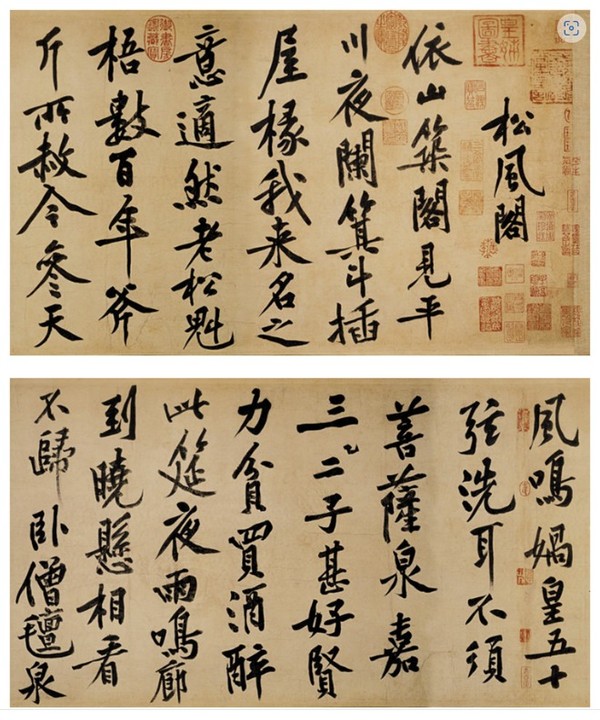 皇姊圖書
松風閣
依山築閣見平
川夜闌箕斗插
屋椽我来名之
意適然老松魁
梧數百年斧
斤所赦今參天
風鳴媧皇五十
弦洗耳不須
菩薩泉嘉
三二子甚好賢
力貧買酒醉
此筵夜雨鳴廊
到曉懸相看
不歸卧僧氊泉